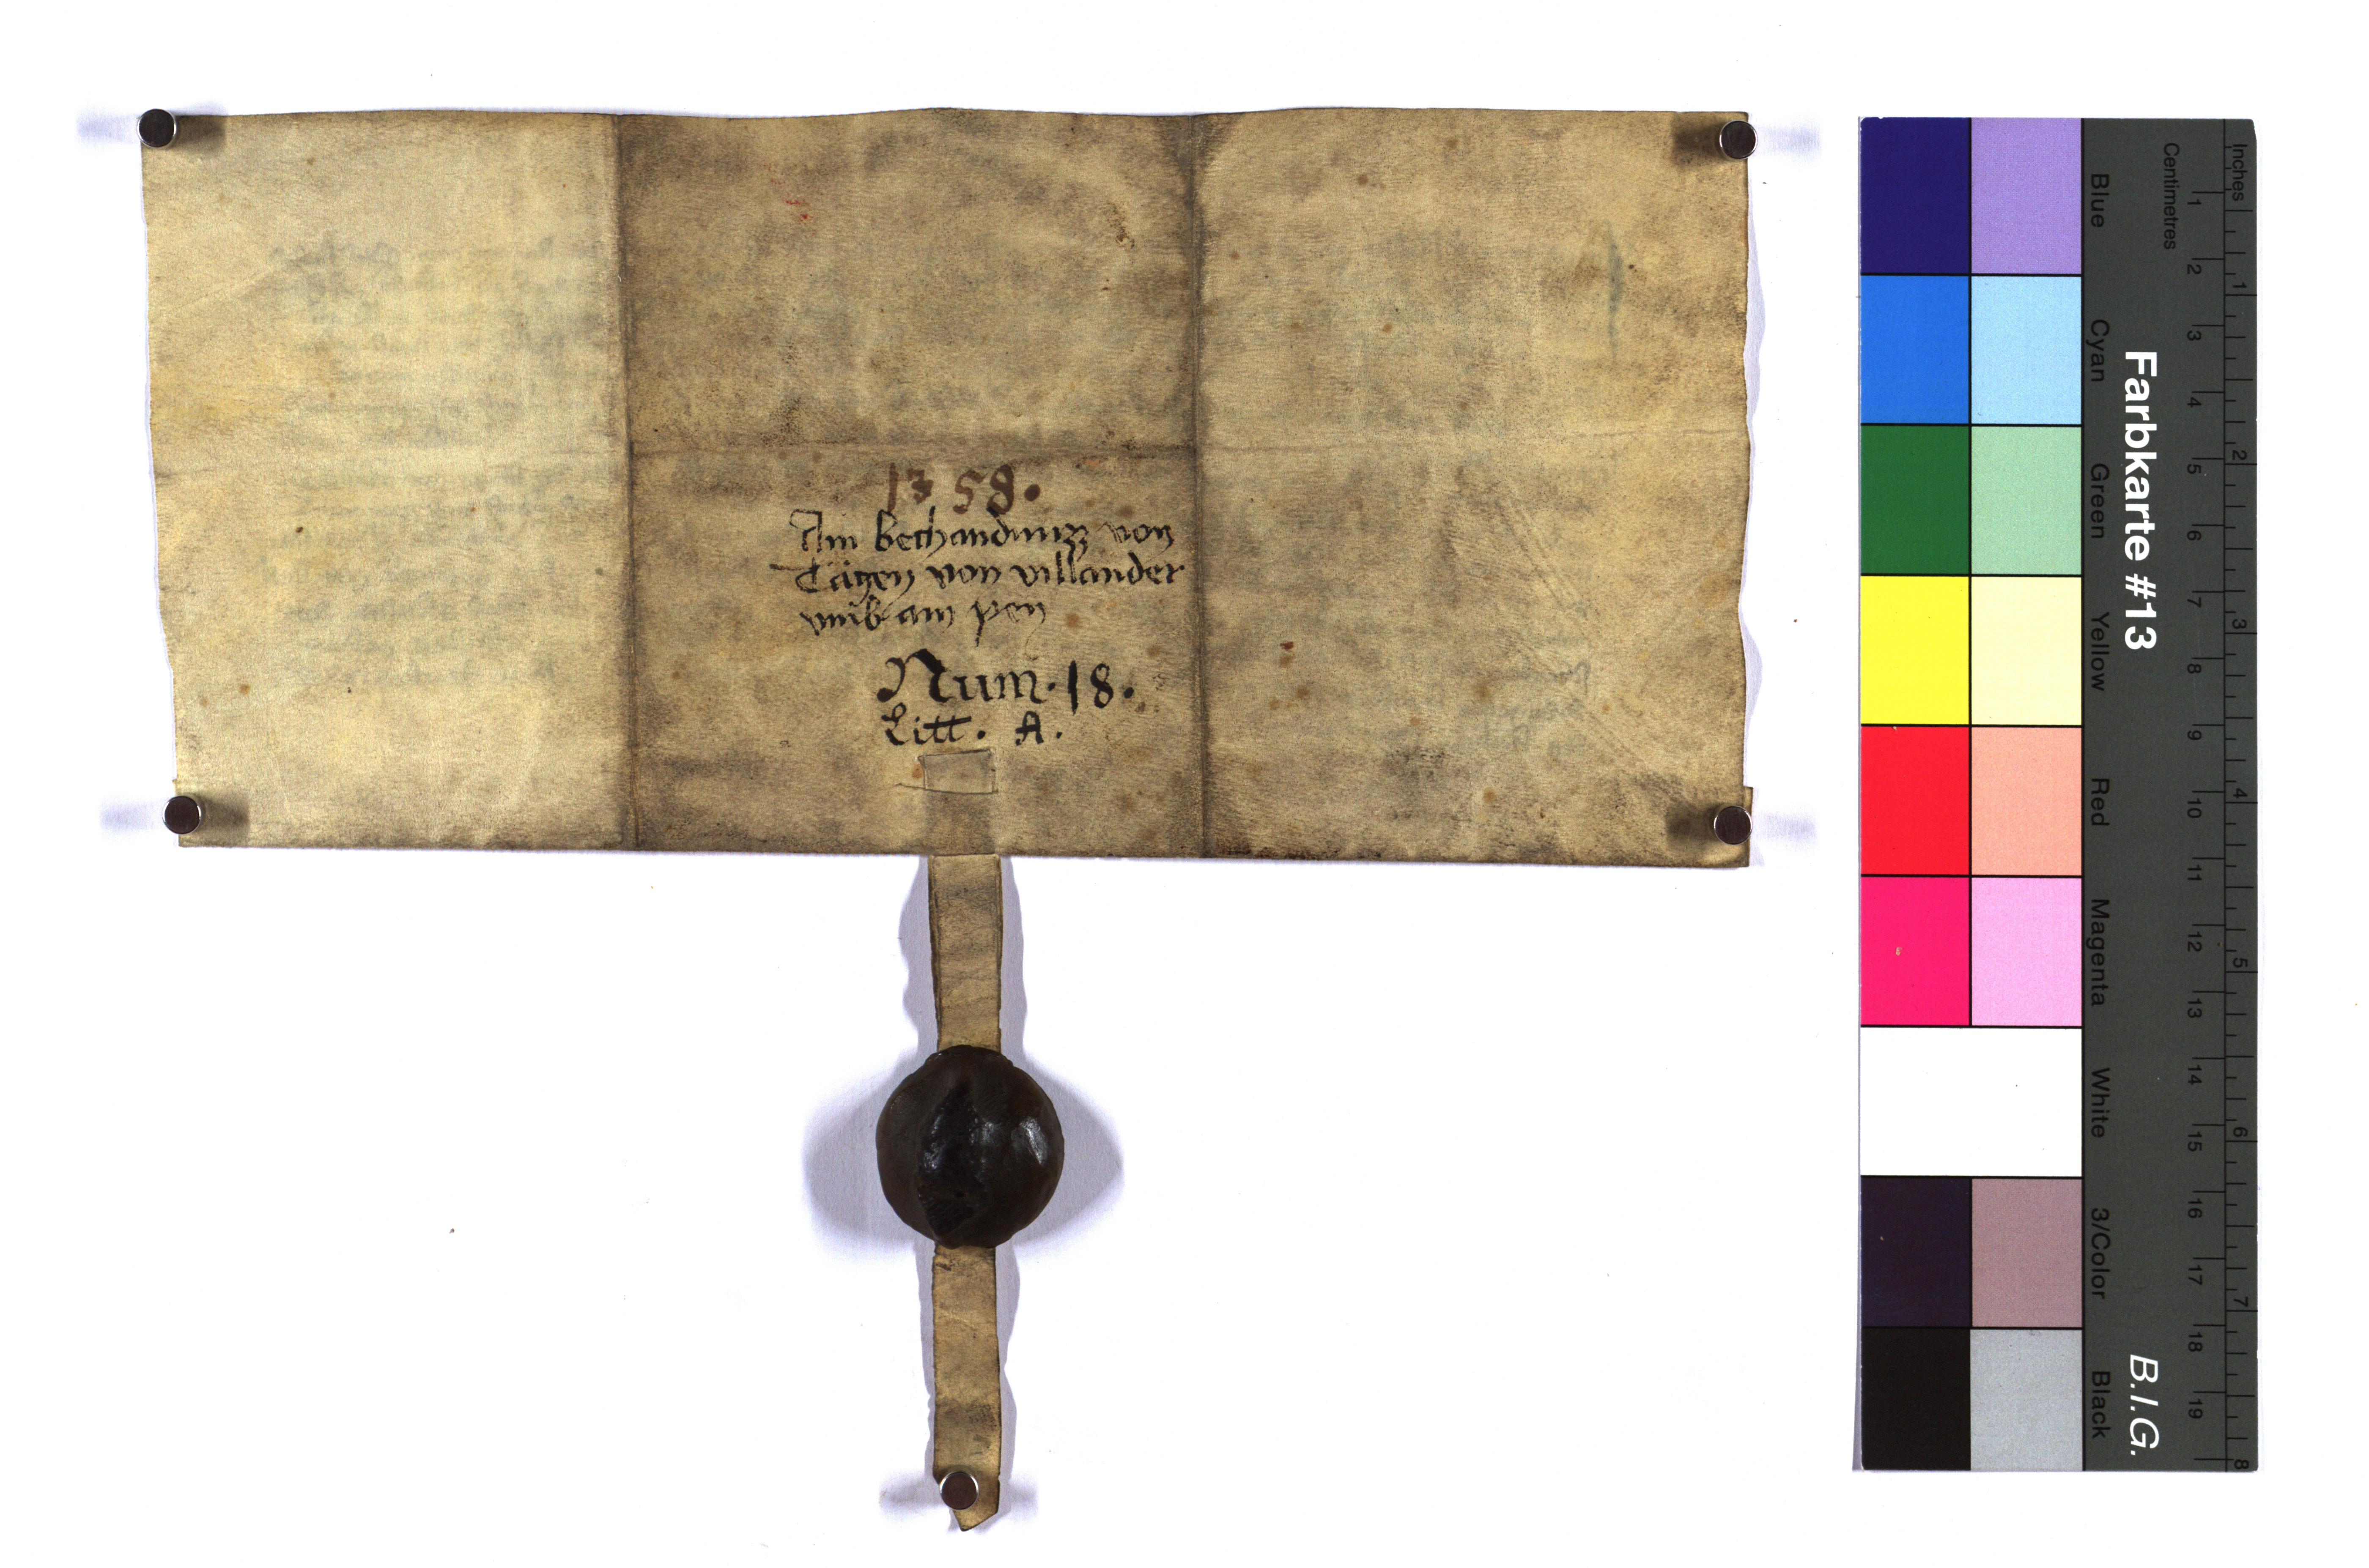 1358.
Ain bethandnuzz von
Täge​n von villander
umb ain pen
Num. 18.
Litt. A.
Inches
Centimetres
1 2 3 4 5 6 7 8
1 2 3 4 5 6 7 8 9 10 11 12 13 14 15 16 17 18 19
Farbkarte #13
B.I.G.
Blue
Cyan
Green
Yellow
Red
Magenta
White
3/Color
Black